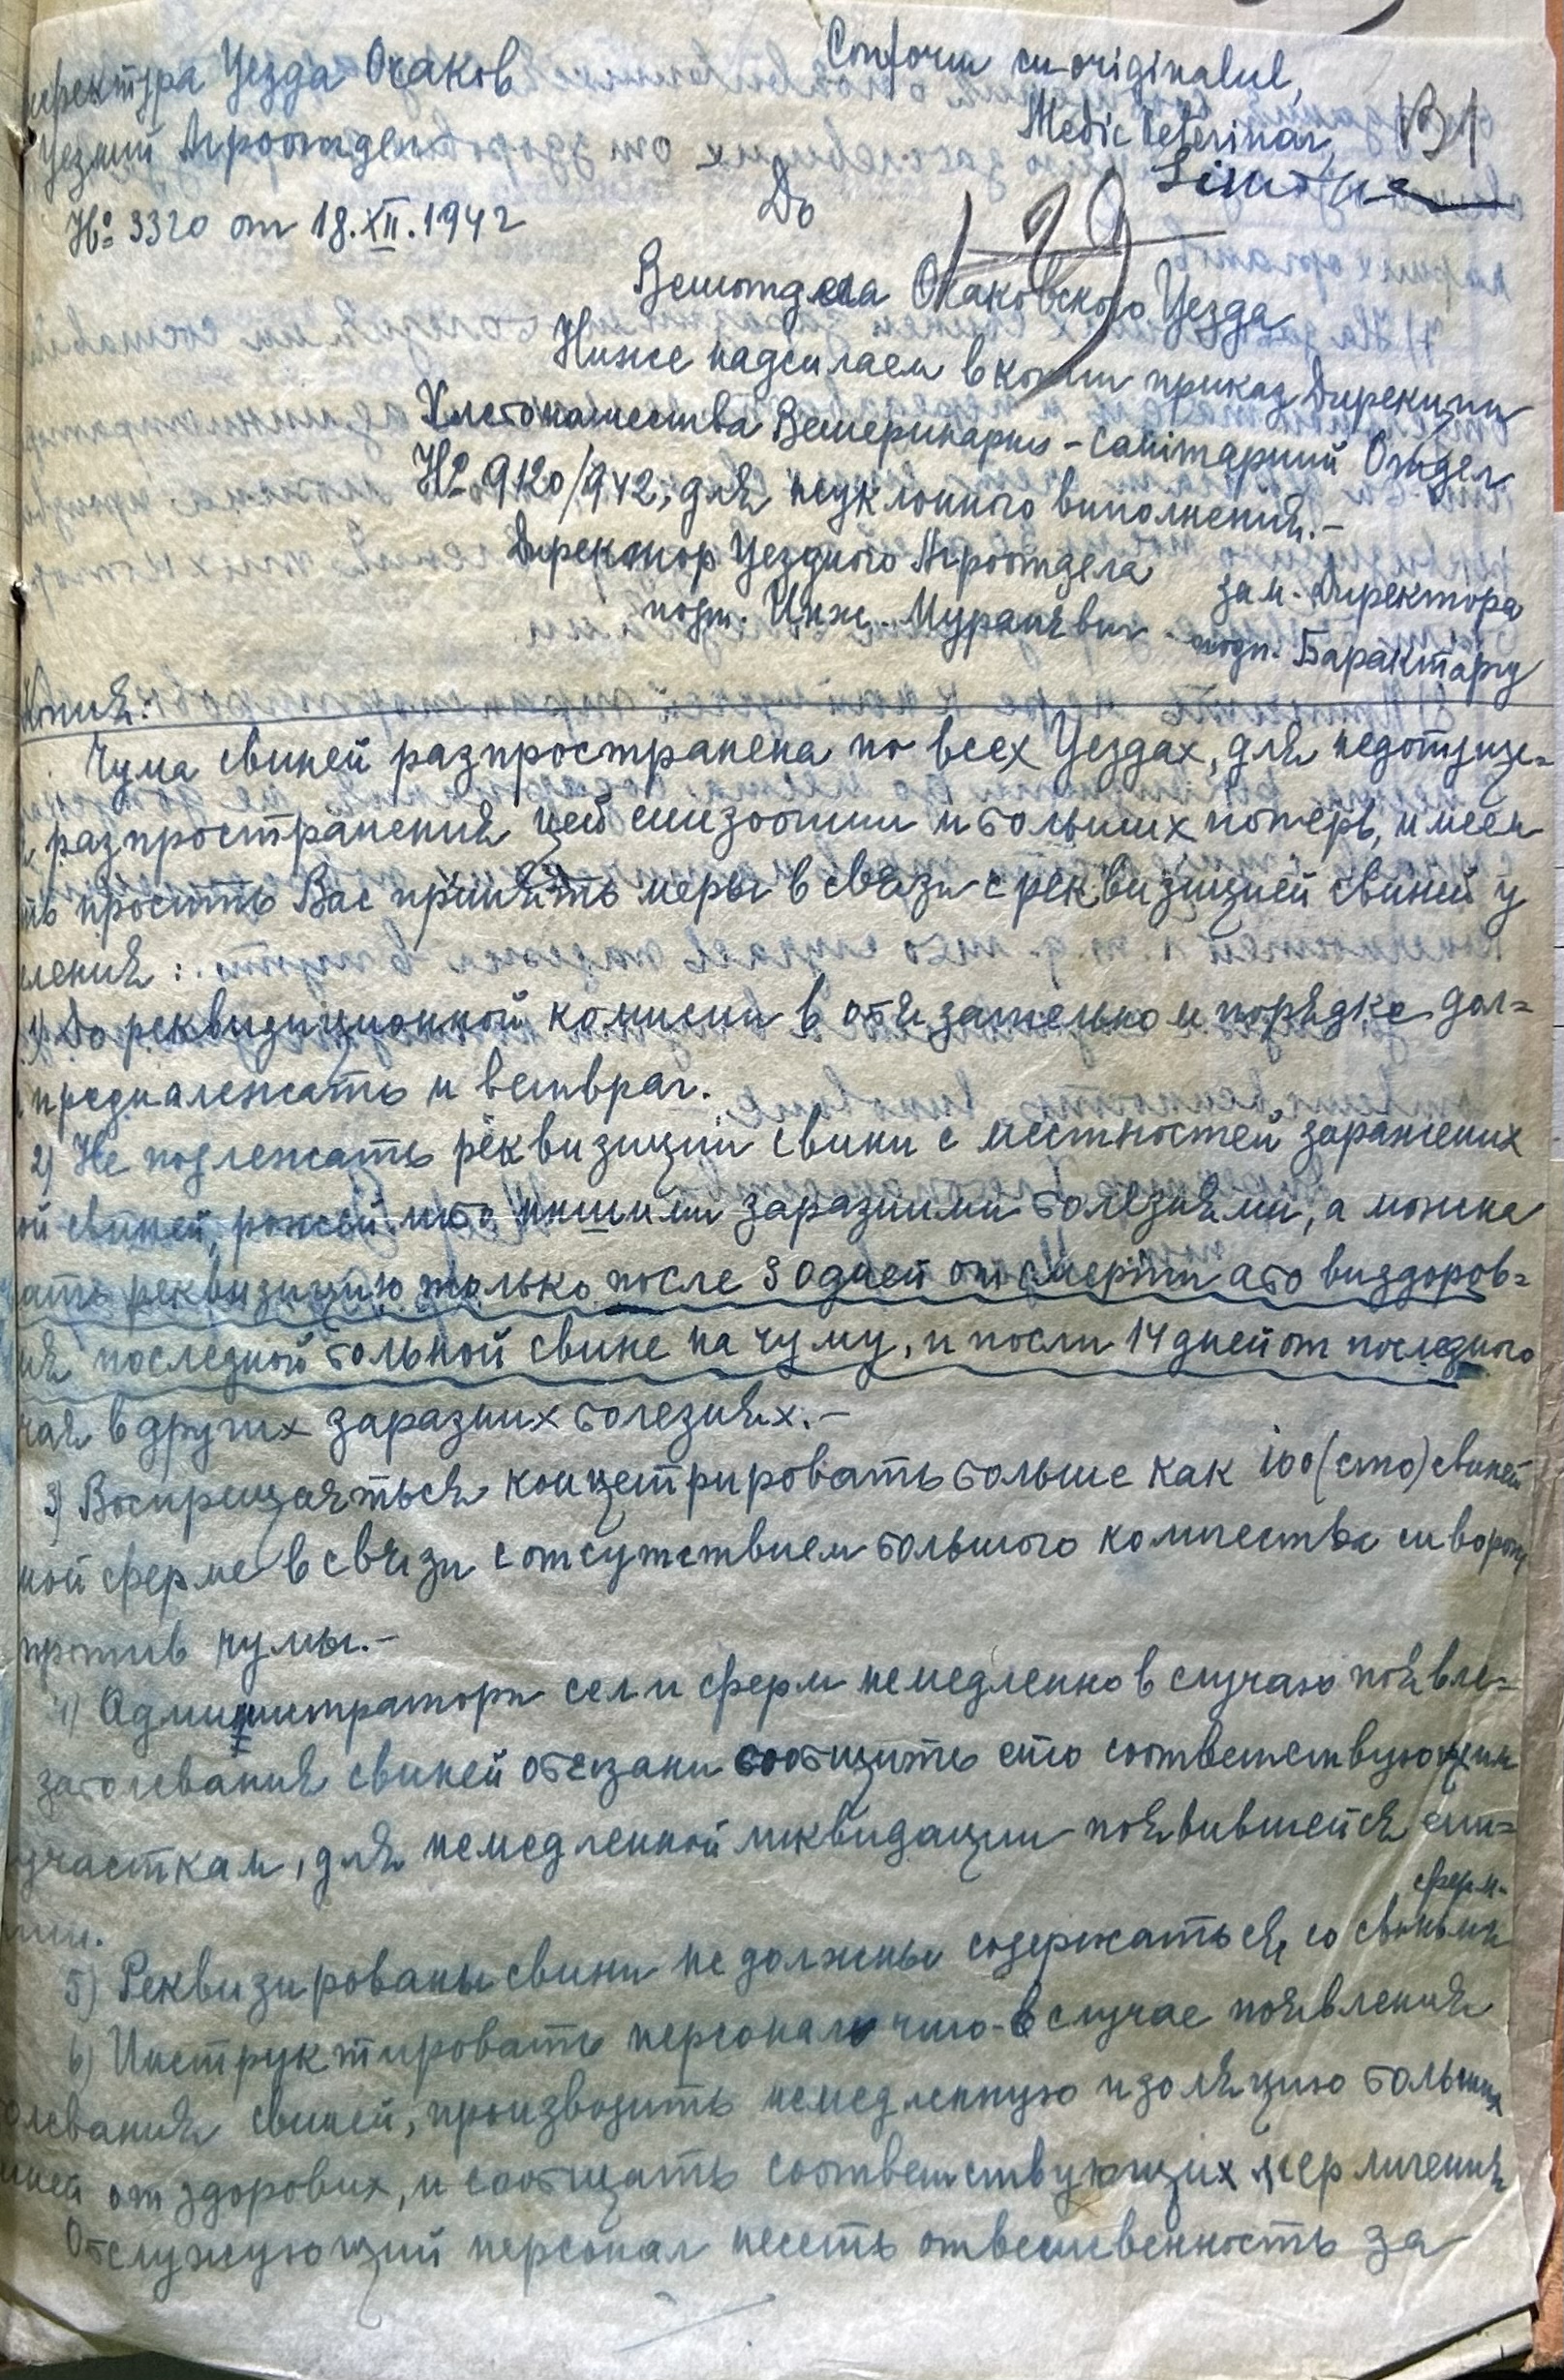 префектура Уезда Очаков
Conform cu originalul,
Уездний Агроотдел
Medic Veterinar,
131
№ 3320 от 18.XII.1942
До
129
Ветотдела Очаковского Уезда
Ниже надсилаем в копии приказ Дирекции
Хлебопашества Ветеринарно-Санітарний Отдел
№ 9120/942, для неуклонного виполнения.-
Директор Уездного Агроотдела
зам. Директора
подп. Инж. Муранevич
подп. Барактару
Копия:
Чума свиней разпространена по всех Уездах, для недопуще=
разпространения цей епизоотии и больших потерь, имеем
ть просить Вас принять меры в связи с реквизицией свиней у
еления:
1) До реквизиционной комисии в обязательном порядке дол=
предналежать и ветврач.
2) Не подлежать реквизиции свини с местностей заражених
ой свиней, рожей либо иншими заразними болезнями, а можна
ать реквизицию только после 30 дней от смерти або виздоров=
ия последной больной свине на чуму, и посли 14 дней от последного
чая в других заразних болезнях.-
3) Воспрещаяться концетрировать больше как 100 (сто) свиней
ной ферме в связи с отсутствием большого количества сиворот
против чумы.-
4) Администратори сел и ферм немедленно в случаю появле=
заболевания свиней обязани сообщить ето соответствующим
участкам, для немедленной ликвидации появившейся епи=
тии.
ферм.
5) Реквизированы свини не должны содержаться со свиньми
6) Инструктировать персонал что в случае появления
олевания свиней, производить немедленную изоляцию больних
иней от здорових, и сообщать соответствующих мер личения
Обслужующий персонал несеть ответственность за